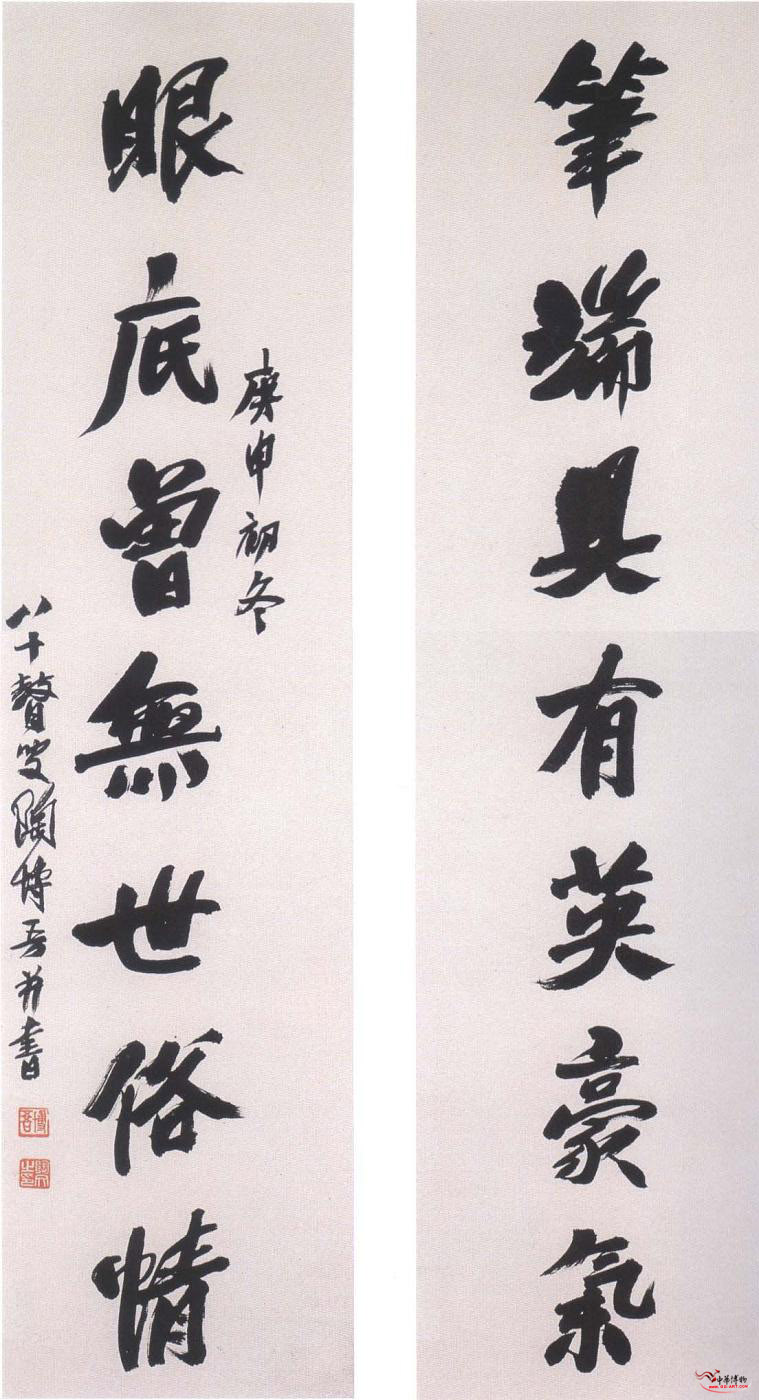 筆端具有英豪氣
眼底曾無世俗情
庚申初冬
八十贅叟陶博吾并書
博吾
中華博物